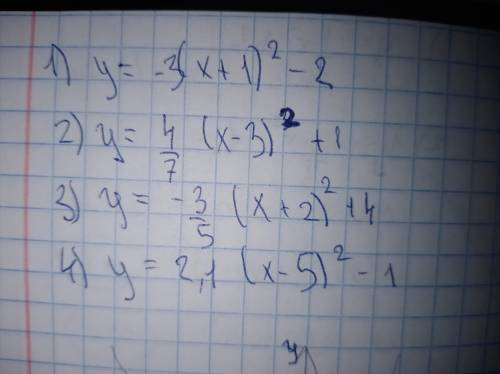 1) y = -3(x+1)² - 2
2) y = 4/7 (x-3)² + 1
3) y = -3/5 (x+2)² + 4
4) y = 2,1 (x-5)² - 1
y